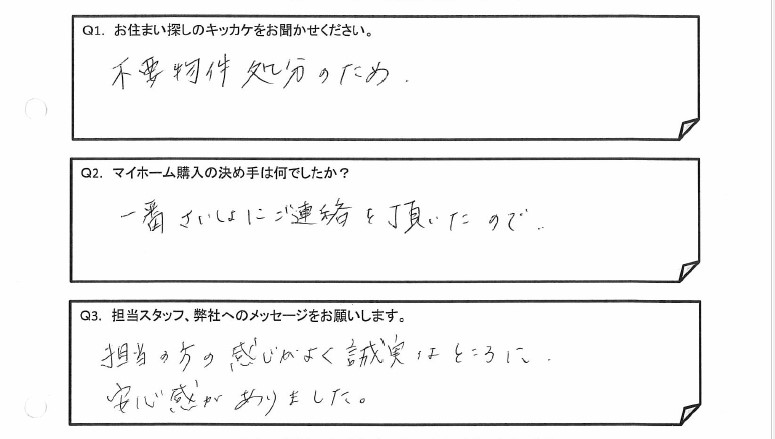 Q1. お住まい探しのキッカケをお聞かせください。
不要物件処分のため.
Q2. マイホーム購入の決め手は何でしたか？
一番さいしょにご連絡を頂いたので.
Q3. 担当スタッフ、弊社へのメッセージをお願いします。
担当の方の感じがよく誠実なところに.
安心感がありました。